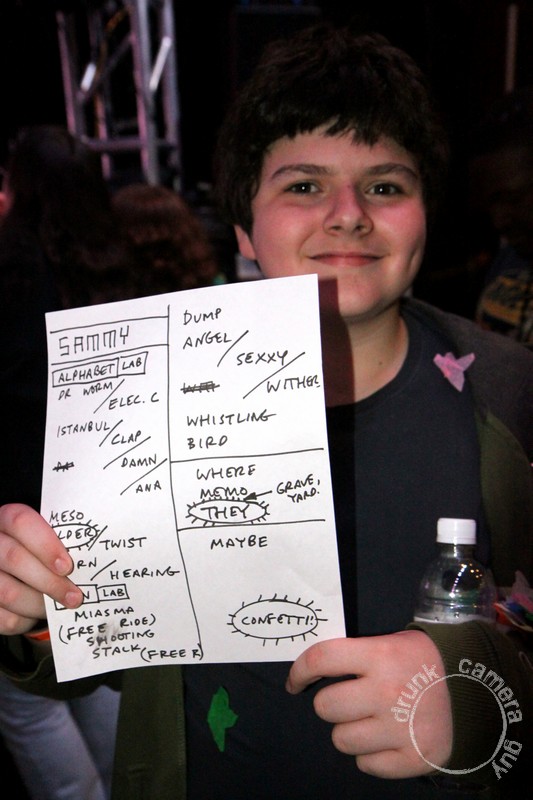 SAMMY
ALPHABET LAB
DR WORM/
ELEC. C
ISTANBUL/
CLAP
/DAMN
/ANA
MESO
LDER/
TWIST
RN/
HEARING
N LAB
MIASMA
(FREE RIDE)
SHOOTING
STALK (FREE R)
DUMP
ANGEL/
SEXXY
/WITHER
WHISTLING
BIRD
WHERE
MEMO
GRAVE,
YARD.
THEY
MAYBE
CONFETTI!
drunk camera guy